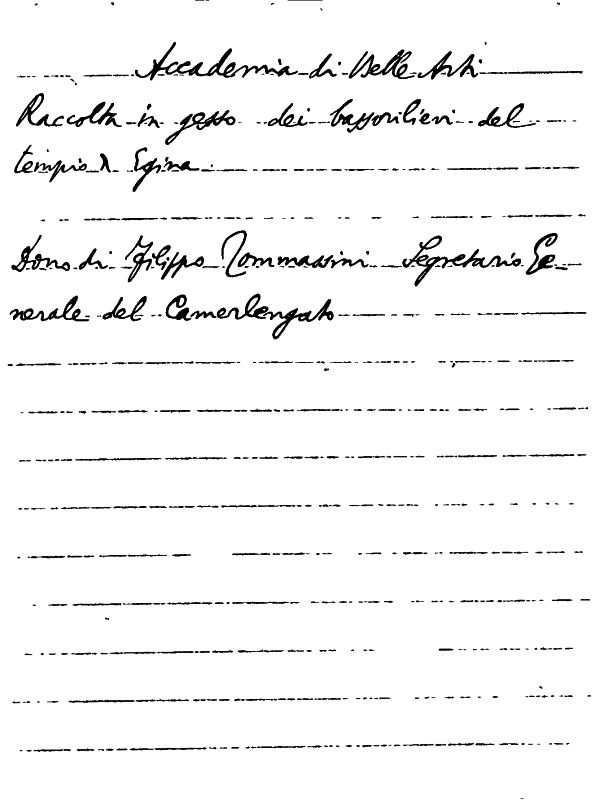 Accademia di Belle Arti
Raccolta in gesso dei bassorilievi del
tempio di Egina.
Dono di Filippo Tommassini Segretario Ge-
nerale del Camerlengato